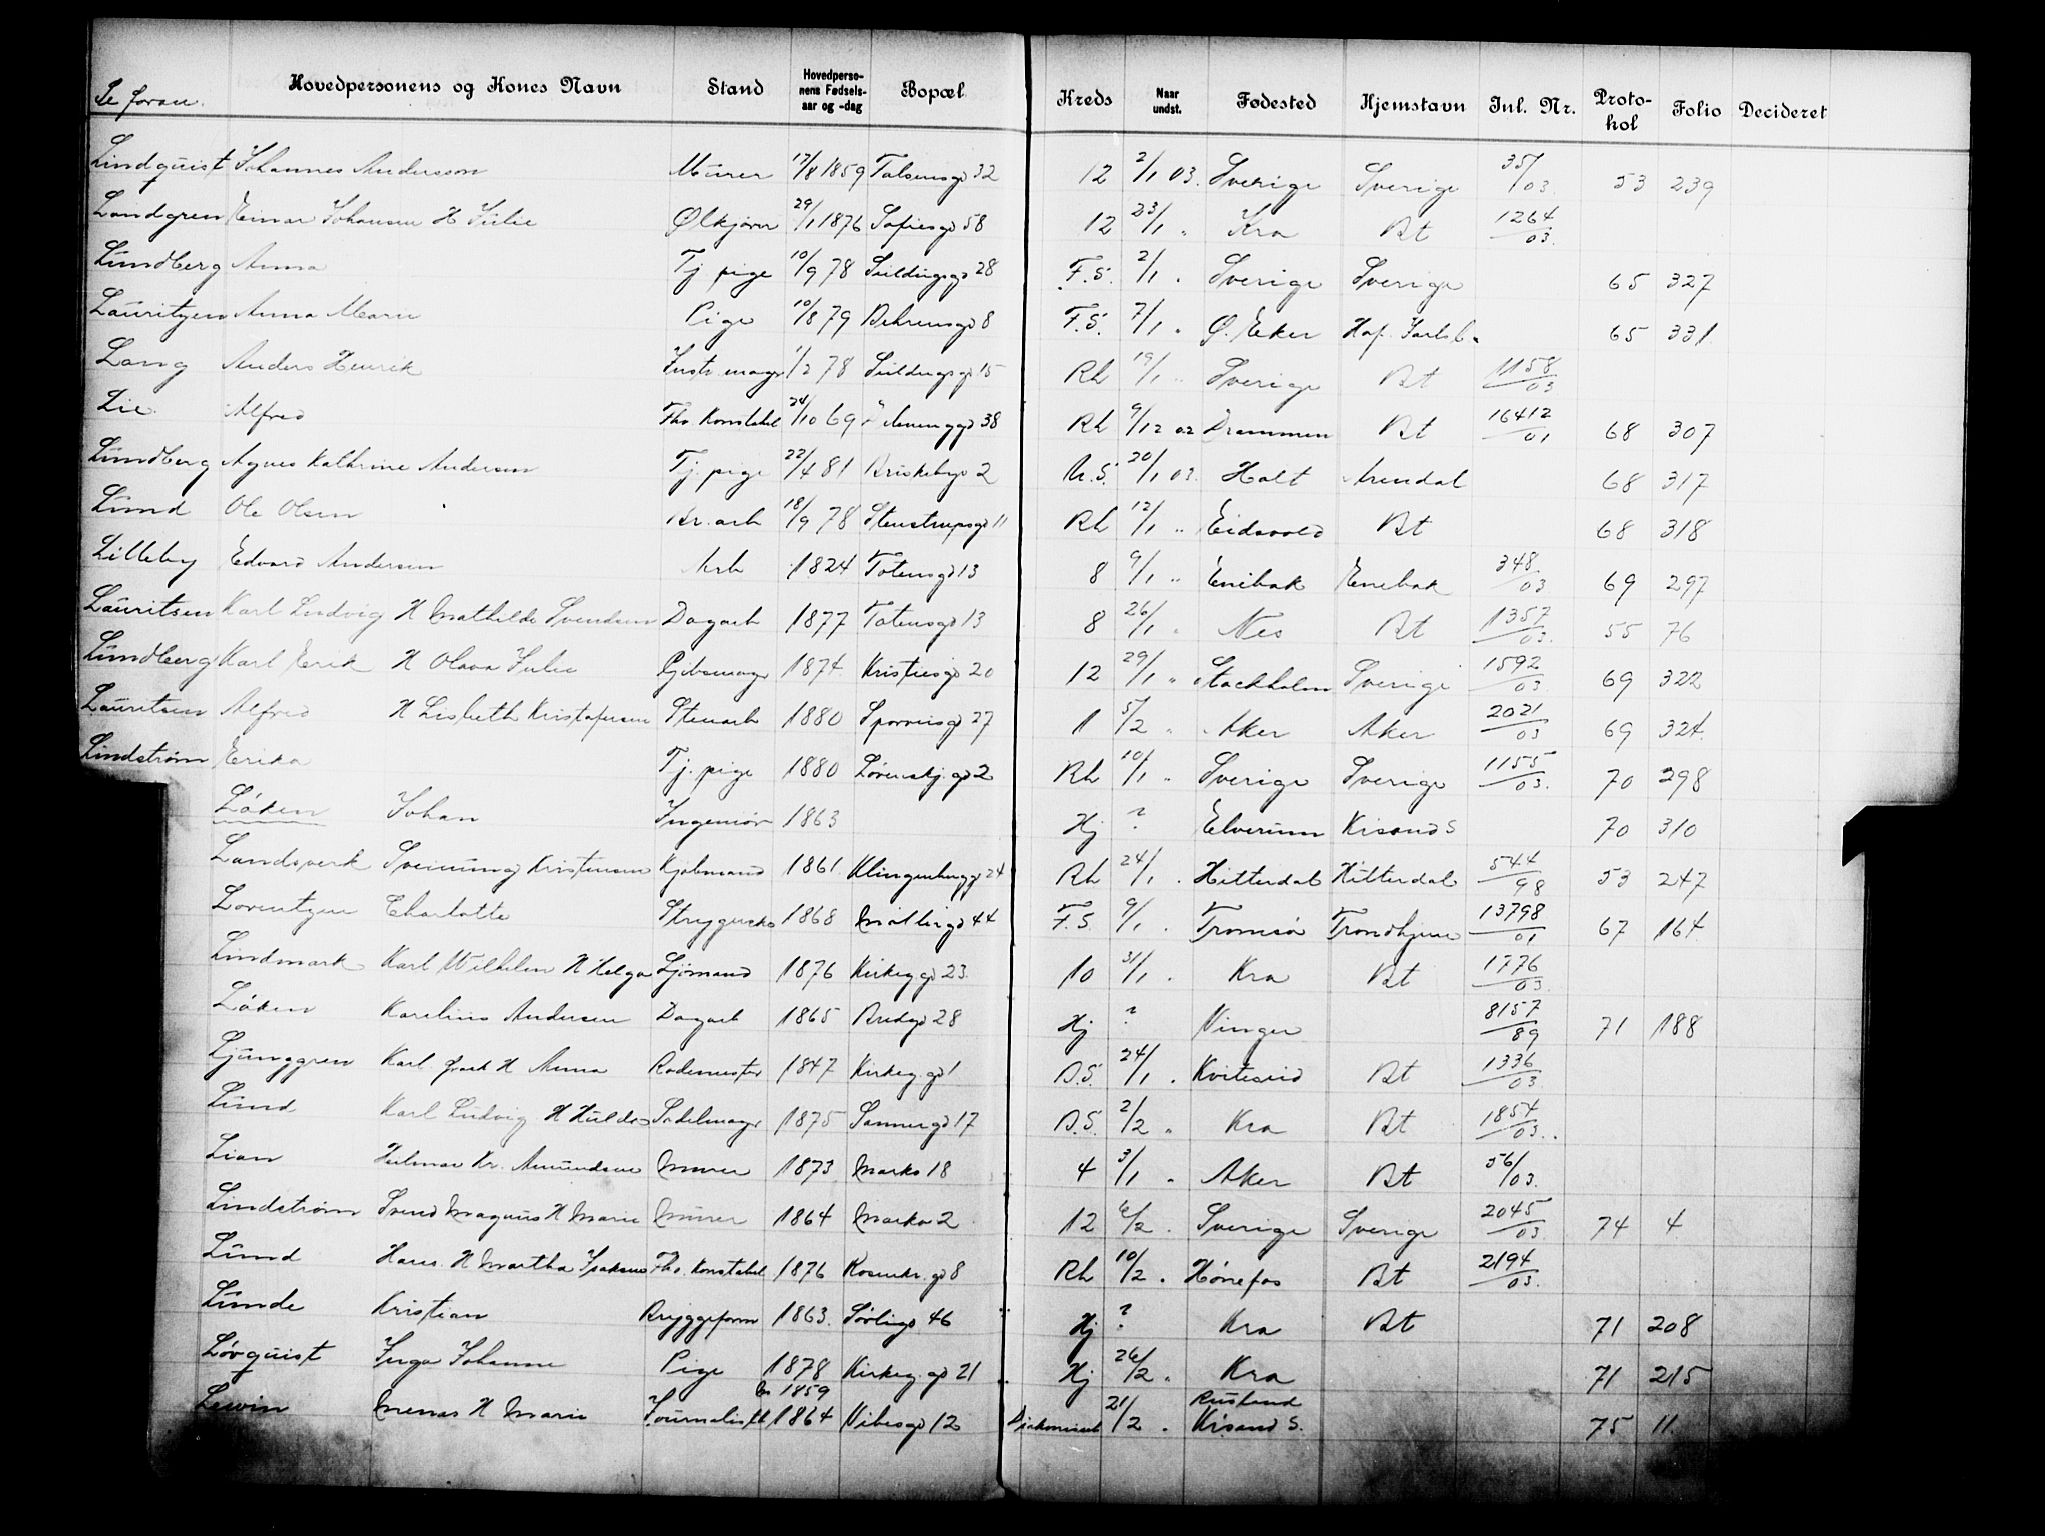 Se foran. Hovedpersonens og Kones Navn Stand Hovedpersonens Fødselsaar og -dag Bopæl Kreds Naar undst. Fødested Hjemstavn Inl. Nr. Protokol Folio Decideret
Lindquist Johannes Andersson Murer 17/8 1859 32 12 2/1 03. Sverige Sverige 35/03. 53 239
Landgren Einar Johansen H Julie Ølkjører 29/1 1876 Sofiesgd 58 12 23/1 " Kra Bt 1264/03.
Lundberg Anna Tj. pige 10/9 78 28 F.S. 2/1 " Sverige Sverige 65 327
Lauritzen Anna Marie Pige 10/8 79 Behrensgd 8 F.S. 7/1 " Ø. Eker 65 331
Lang Anders Henrik Instr. magr 1/2 78 15 Rh 19/1 " Sverige Bt 1158/03
Lie Alfred Fhv. Konstabel 24/10 69 38 Rh 9/12 02 Drammen Bt 16412/01 68 307
Lundberg Agnes Kathrine Andersen Tj. pige 22/4 81 Briskebyv 2 U.S. 20/1 03. Holt Arendal 68 317
Lund Ole Olsen Br. arb 18/9 78 Stenstrupsgd 11 Rh 12/1 " Eidsvold Bt 68 318
Lilleby Edvard Andersen Arb 1824 Totensgd 13 8 9/1 " Enebak Enebak 348/03 69 297
Lauritsen Karl Ludvig H Mathilde Svendsen Dagarb 1877 Totensgd 13 8 26/1 " Nes Bt 1357/03. 55 76
Lundberg Karl Erik H Olava Julie Gibsmagr 1874 Kristiesgd 20 12 29/1 " Stockholm Sverige 1592/03 69 322
Lauritsen Alfred H Lisbeth Kristofersen Stenarb 1880 Sporveisgd 27 1 5/2 " Aker Aker 2021/03 69 324
Lindstrøm Erika Tj. pige 1880 Løvenskj. gd 2 Rh 10/1 " Sverige Sverige 1155/03. 70 298
Løken Johan Ingeniør 1863 Hj ? Elverum Krisand S 70 310
Landsverk Sveinung Kristensen Kjøbmand 1861 Klingenbergg 24 Rh 24/1 " Hitterdal Hitterdal 544/98 53 247
Lorentzen Charlotte 1868 Møllergd 44 F.S. 9/1 " Tromsø Trondhjem 13798/01 67 164
Lindmark Karl Wilhelm H Helga Sjømand 1876 Kirkeg gd 23 10 31/1 " Kra Bt 1776/03
Løken Karelius Andersen Dagarb 1865 Bredgd 28 Hj ? Vinger 8157/89 71 188
Ljunggren Karl H Anna Rodemester 1847 Kirkeg. gd 1 B.S. 24/1 " Kviteseid Bt 1336/03.
Lund Karl Ludvig H Hulda Sadelmagr 1875 Sannergd 17 B.S. 2/2 " Kra Bt 1854/03.
Lian Hilmar Kr. Amundsen Murer 1873 Markv 18 4 3/1 " Aker Bt 56/03.
Lindstrøm Svend Magnus H Marie Murer 1864 Markv 2 12 6/2 " Sverige Sverige 2045/03 74 4
Lund Hans H Martha Isaksen Fhv. Konstabel 1876 Rosenkr. gd 8 Rh 10/2 " Hønefos Bt 2194/03.
Lunde Kristian Bryggeform 1863. Sørligd 46 Hj ? Kra Bt 71 208
Løvquist Inga Johanne Pige 1878 Kirkeg. gd 21 Hj 26/2 " Kra 71 215
Lewin Menas H Marie Journalist 1859 1864 Vibesgd 12 21/2 " Rusland Krisand S. 75 11